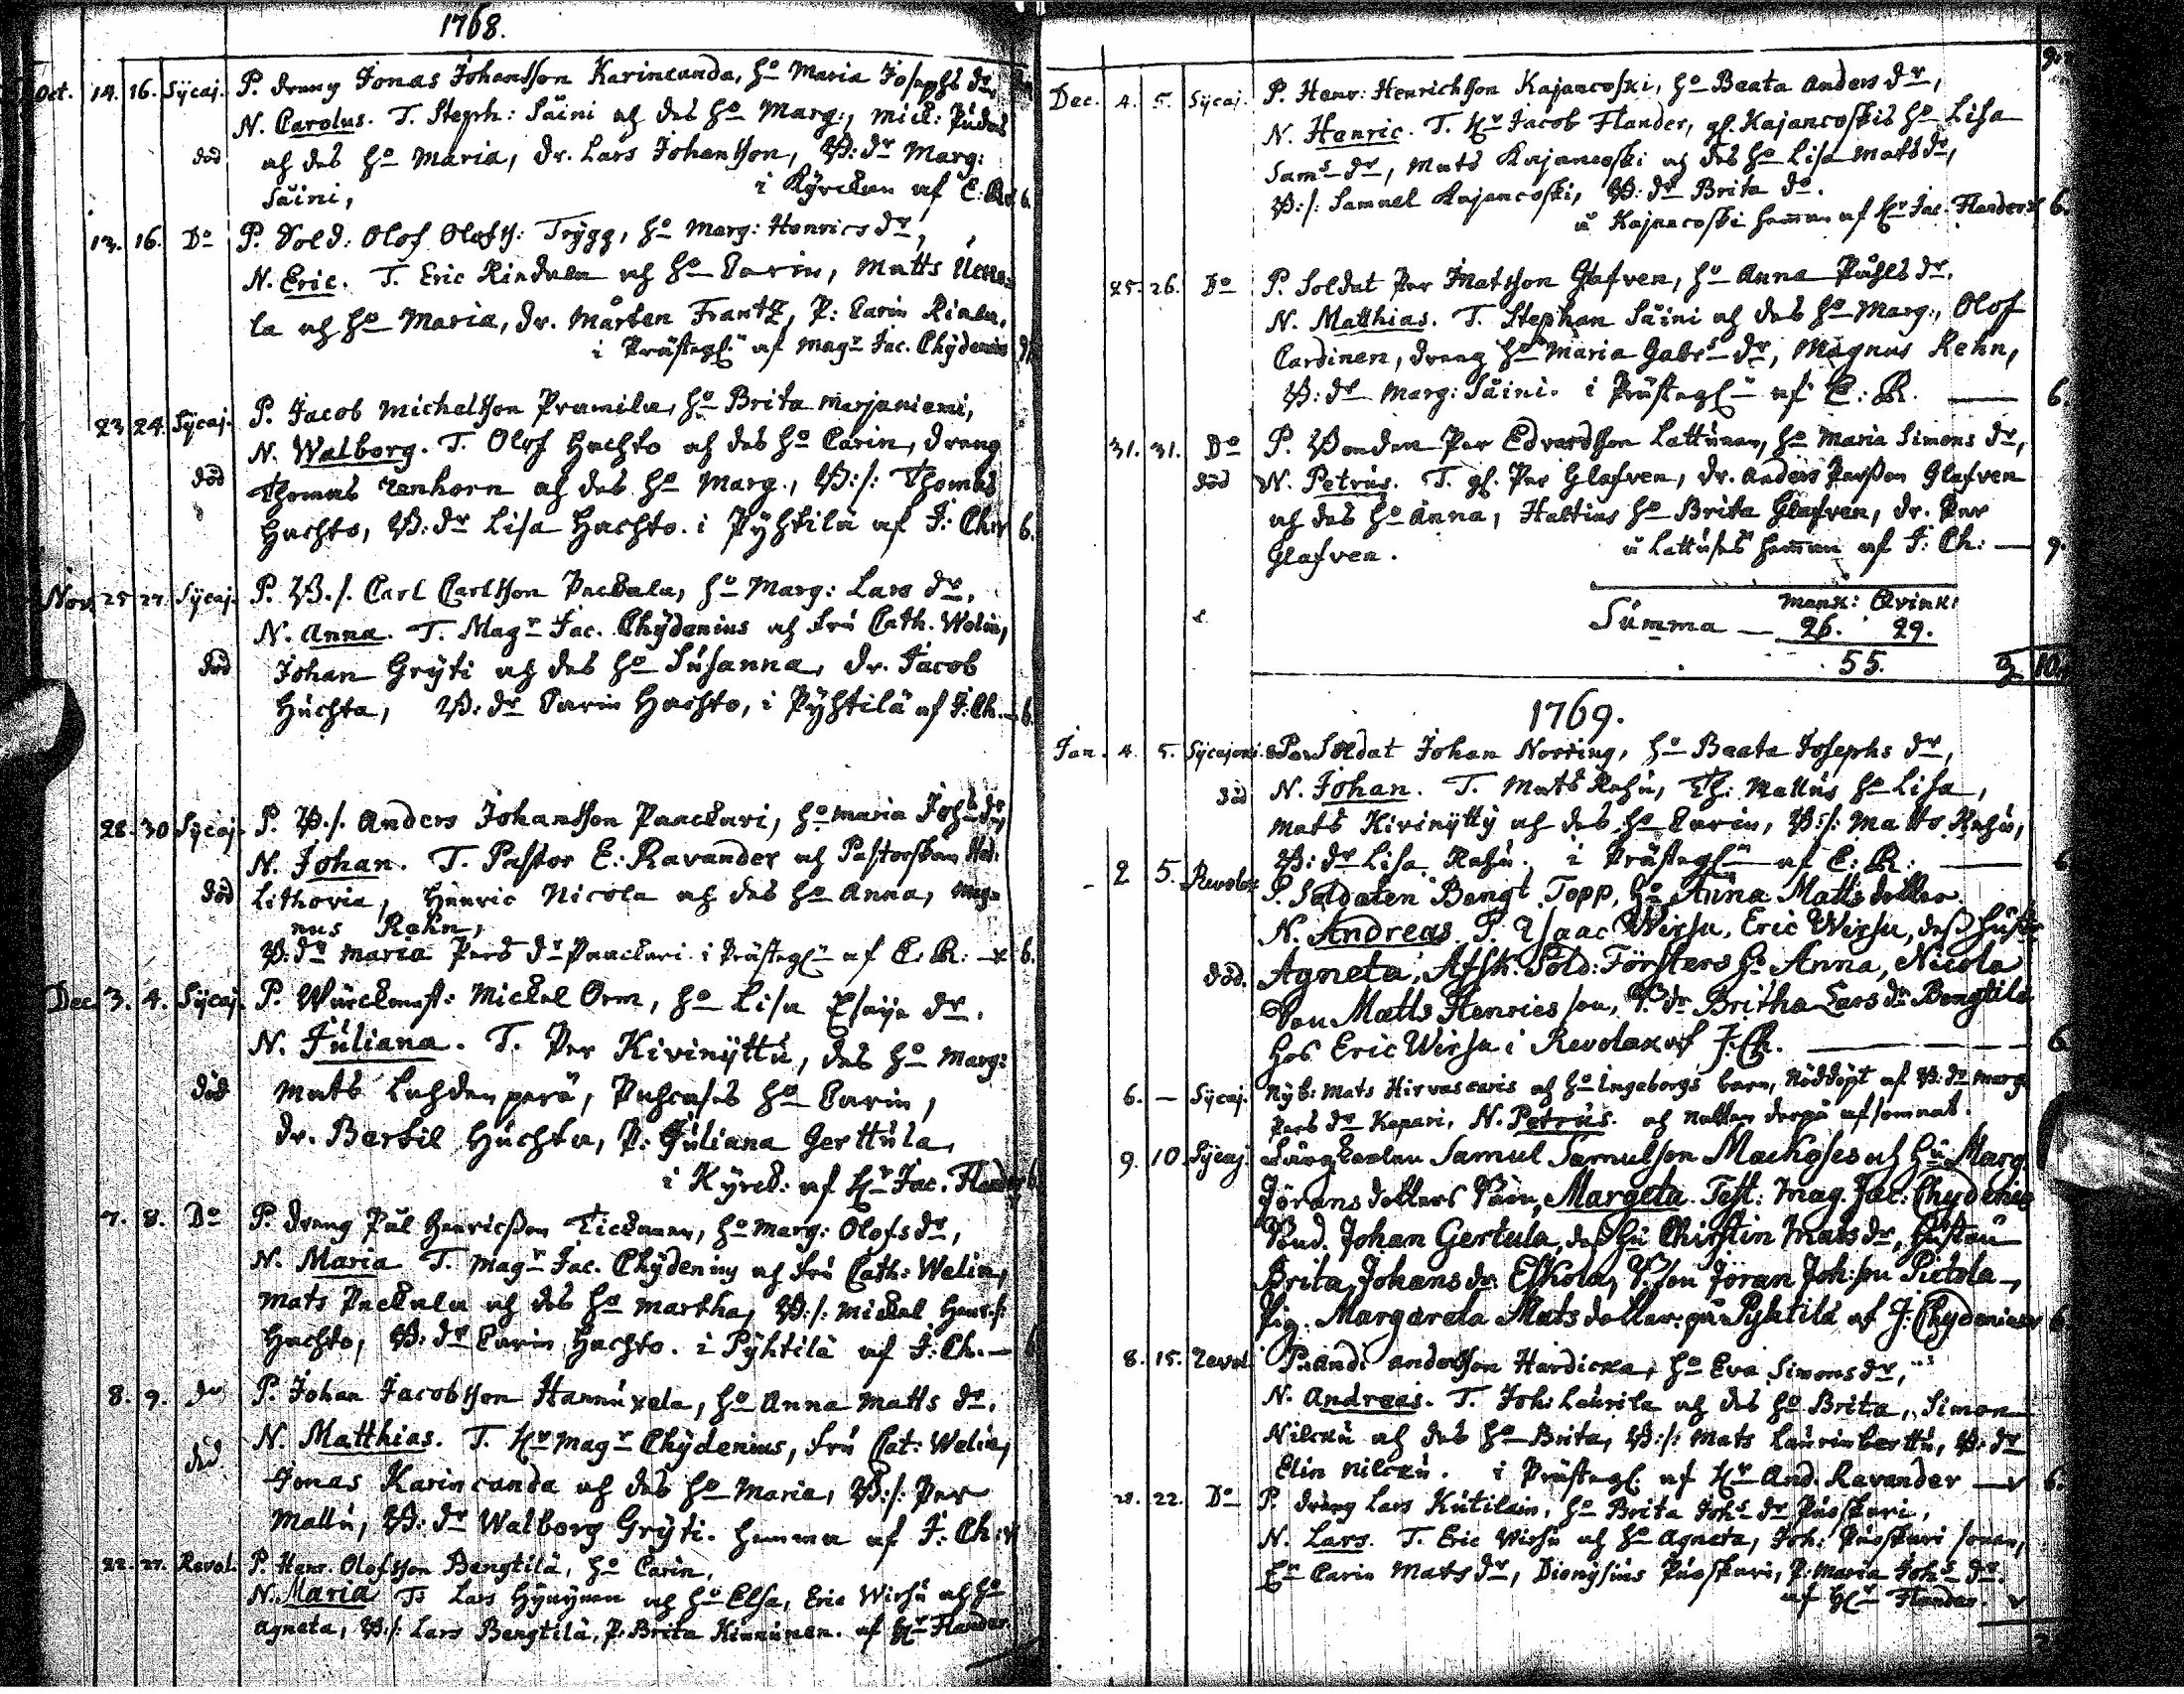 1768.
Oct. 14. 16. Sÿcaj. P. dreng Jonas Johansson Karincanda, ho Maria Josephs dr,
N. Carolus. T. Steph: Säini och des ho Marg:, Mick: Pudas
död och des ho Maria, dr. Lars Johansson, B: dr Marg:
Säini, i Kÿrckan af E: R. 6.
13. 16. Do P. Sold: Olof Olofss: Trÿgg, ho Marg: Henrics dr,
N. Eric. T. Eric Rindula och ho Carin, Matts
la och ho Maria, dr. Mårten Frantz, P: Carin
i Prästeg. af Magr Jac. Chÿdenius
23 24. Sÿcaj. P. Jacob Michelsson Pramila, ho Brita Marjaniemi,
N. Walborg. T. Olof Huchto och des ho Carin, dreng
död Thomas renhorn och des ho Marg., B: s: Thomas
Huchto, B: dr Lisa Huchto. i Pÿhtilä af J: Ch: 6.
Nov. 25 27. Sÿcaj. P. B. s. Carl Carlsson Packala, ho Marg: Lars dr,
N. Anna. T. Magr Jac. Chÿdenius och fru Cath. Welin,
död Johan Grÿti och des ho Susanna, dr. Jacob
Huchta, B: dr Carin Huchto, i Pÿhtilä af J: Ch. 6.
28. 30 Sÿcaj. P. B. s. Anders Johansson Paackari, ho Maria Johs dr
N. Johan. T. Pastor E: Ravander och Pastorskan Hed:
död Lithovia, Henric Nicola och des ho Anna, Mag-
nus Rehn,
B: dr Maria Pers dr Paackari. i Prästeg. af E. R: 6.
Dec. 3. 4. Sÿcaj. P. Mickel Orm, ho Lisa Esaiæ dr.
N. Juliana. T. Per Kivinÿttu, des ho Marg:
död Mats Lahdenperä, Puhcases ho Carin,
dr. Bertil Huchta, P: Juliana Gerttula,
i Kÿrck: af Hr Jac. Flander 6
7. 8. Do P. dreng Pål Henricsson Tickanen, ho Marg: Olofs dr,
N. Maria T. Magr Jac. Chÿdenius och fru Cath: Welin,
Mats Packala och des ho Martha, B: s: Mickel Henr: s:
Huchto, B: dr Carin Huchto. i Pÿhtilä af J: Ch.
8. 9. do P. Johan Jacobsson Hannuxela, ho Anna Matts dr.
N. Matthias. T. Hr Magr Chÿdenius, fru Cat: Welin,
död Jonas Karincanda och des ho Maria, B: s: Per
Mallu, B: dr Walborg Grÿti. hemma af J: Ch:
22. 27. Revol. P. Henr. Olofsson Bengtilä, ho Carin,
N. Maria Ts Lars Hÿnÿnen och ho Elsa, Eric Wirsu och ho
Agneta, B: s: Lars Bengtilä, P. Brita Kinnunen. af Hr Flander.
Dec. 4. 5. Sÿcaj. P. Henr: Henrichsson Kajancoski, ho Beata Anders dr,
N. Henric. T. Hr Jacob Flander, gl. Kajancoskis ho Lisa
Sams dr, Mats Kajancoski och des ho Lisa Mats dr,
B: s: Samuel Kajancoski, B: dr Brita do.
å Kajancoski hemman af Hr Jac. Flander 6.
25. 26. Do P. Soldat Per Matsson Glafven, ho Anna Påhls dr.
N. Matthias. T. Stephan Säini och des ho Marg:, Olof
Cardinen, dreng ho Maria Gabrs dr, Magnus Rehn,
B: dr Marg: Säini. i Prästeg. af E: R. 6.
31. 31. Do P. Bonden Per Edvardsson Lattunen, ho Maria Simons dr,
död N. Petrus. T. gl. Per Glafven, dr. Anders Persson Glafven
och des ho Anna, Haltius ho Brita Glafven, dr. Per
Glafven. å Lattuses hemman af J: Ch: 9.
Mank: Qvink:
Summa 26. 29.
55. 10.
1769.
Jan. 4. 5. Sÿcajoni. Soldat Johan Norring, ho Beata Josephs dr,
död N. Johan. T. Mats Rahu, Th: Mallus ho Lisa,
Mats Kivinÿttÿ och des ho Carin, B: s: Matts Rahu,
B: dr Lisa Rahu. i Prästeg. af E: R: 6
2 5. Revolax P. Soldaten Bengt Topp, Ho Anna Matts dotter.
N. Andreas T. Isaac Wirsu, Eric Wirsu, dess hustr
död. Agneta, Afsk: Sold: Försters Ho Anna, Nicola
Son Matts Henricsson, B: dr Britha Lars dr Bengtilä
hos Eric Wirsu i Revolax af J: Ch. 6
6. — Sÿcaj. Nÿb: Mats Hirvascaris och ho Ingeborgs barn, Nöddöpt af B: dr Marg:
Pers dr Kapari, N. Petrus. och natten derpå afsomnat.
9. 10 Sÿcaj. Samul Samulson Mackoses och hu Marg.
Jörans dotters barn, Margeta. Test: Mag. Jac: Chydenius
Bond. Johan Gertula, des hu Chirstin Mats dr, hustru
Brita Johans dr Elkola, B. son Jöran Joh: son Pietola,
Pig. Margareta Mats dotter: på Pyhtilä af J: Chydenius 6
8. 15. Revol. P. And: Andersson Hardicka, ho Eva Simons dr,
N. Andreas. T. Joh: Laurila och des ho Brita, Simon
Nilcku och des ho Brita, B: s: Mats Laurinberttu, B: dr
Elin Nilcku. i Prästeg. af Hr And. Ravander 6.
22. Do P. dräng Lars Kutilain, ho Brita Johs dr Puoskari,
N. Lars. T. Eric Wirsu och ho Agneta, Joh: Puoskari sonen,
Carin Mats dr, Dionÿsius Puoskari, P. Maria Johs dr.
af Hr Flander.